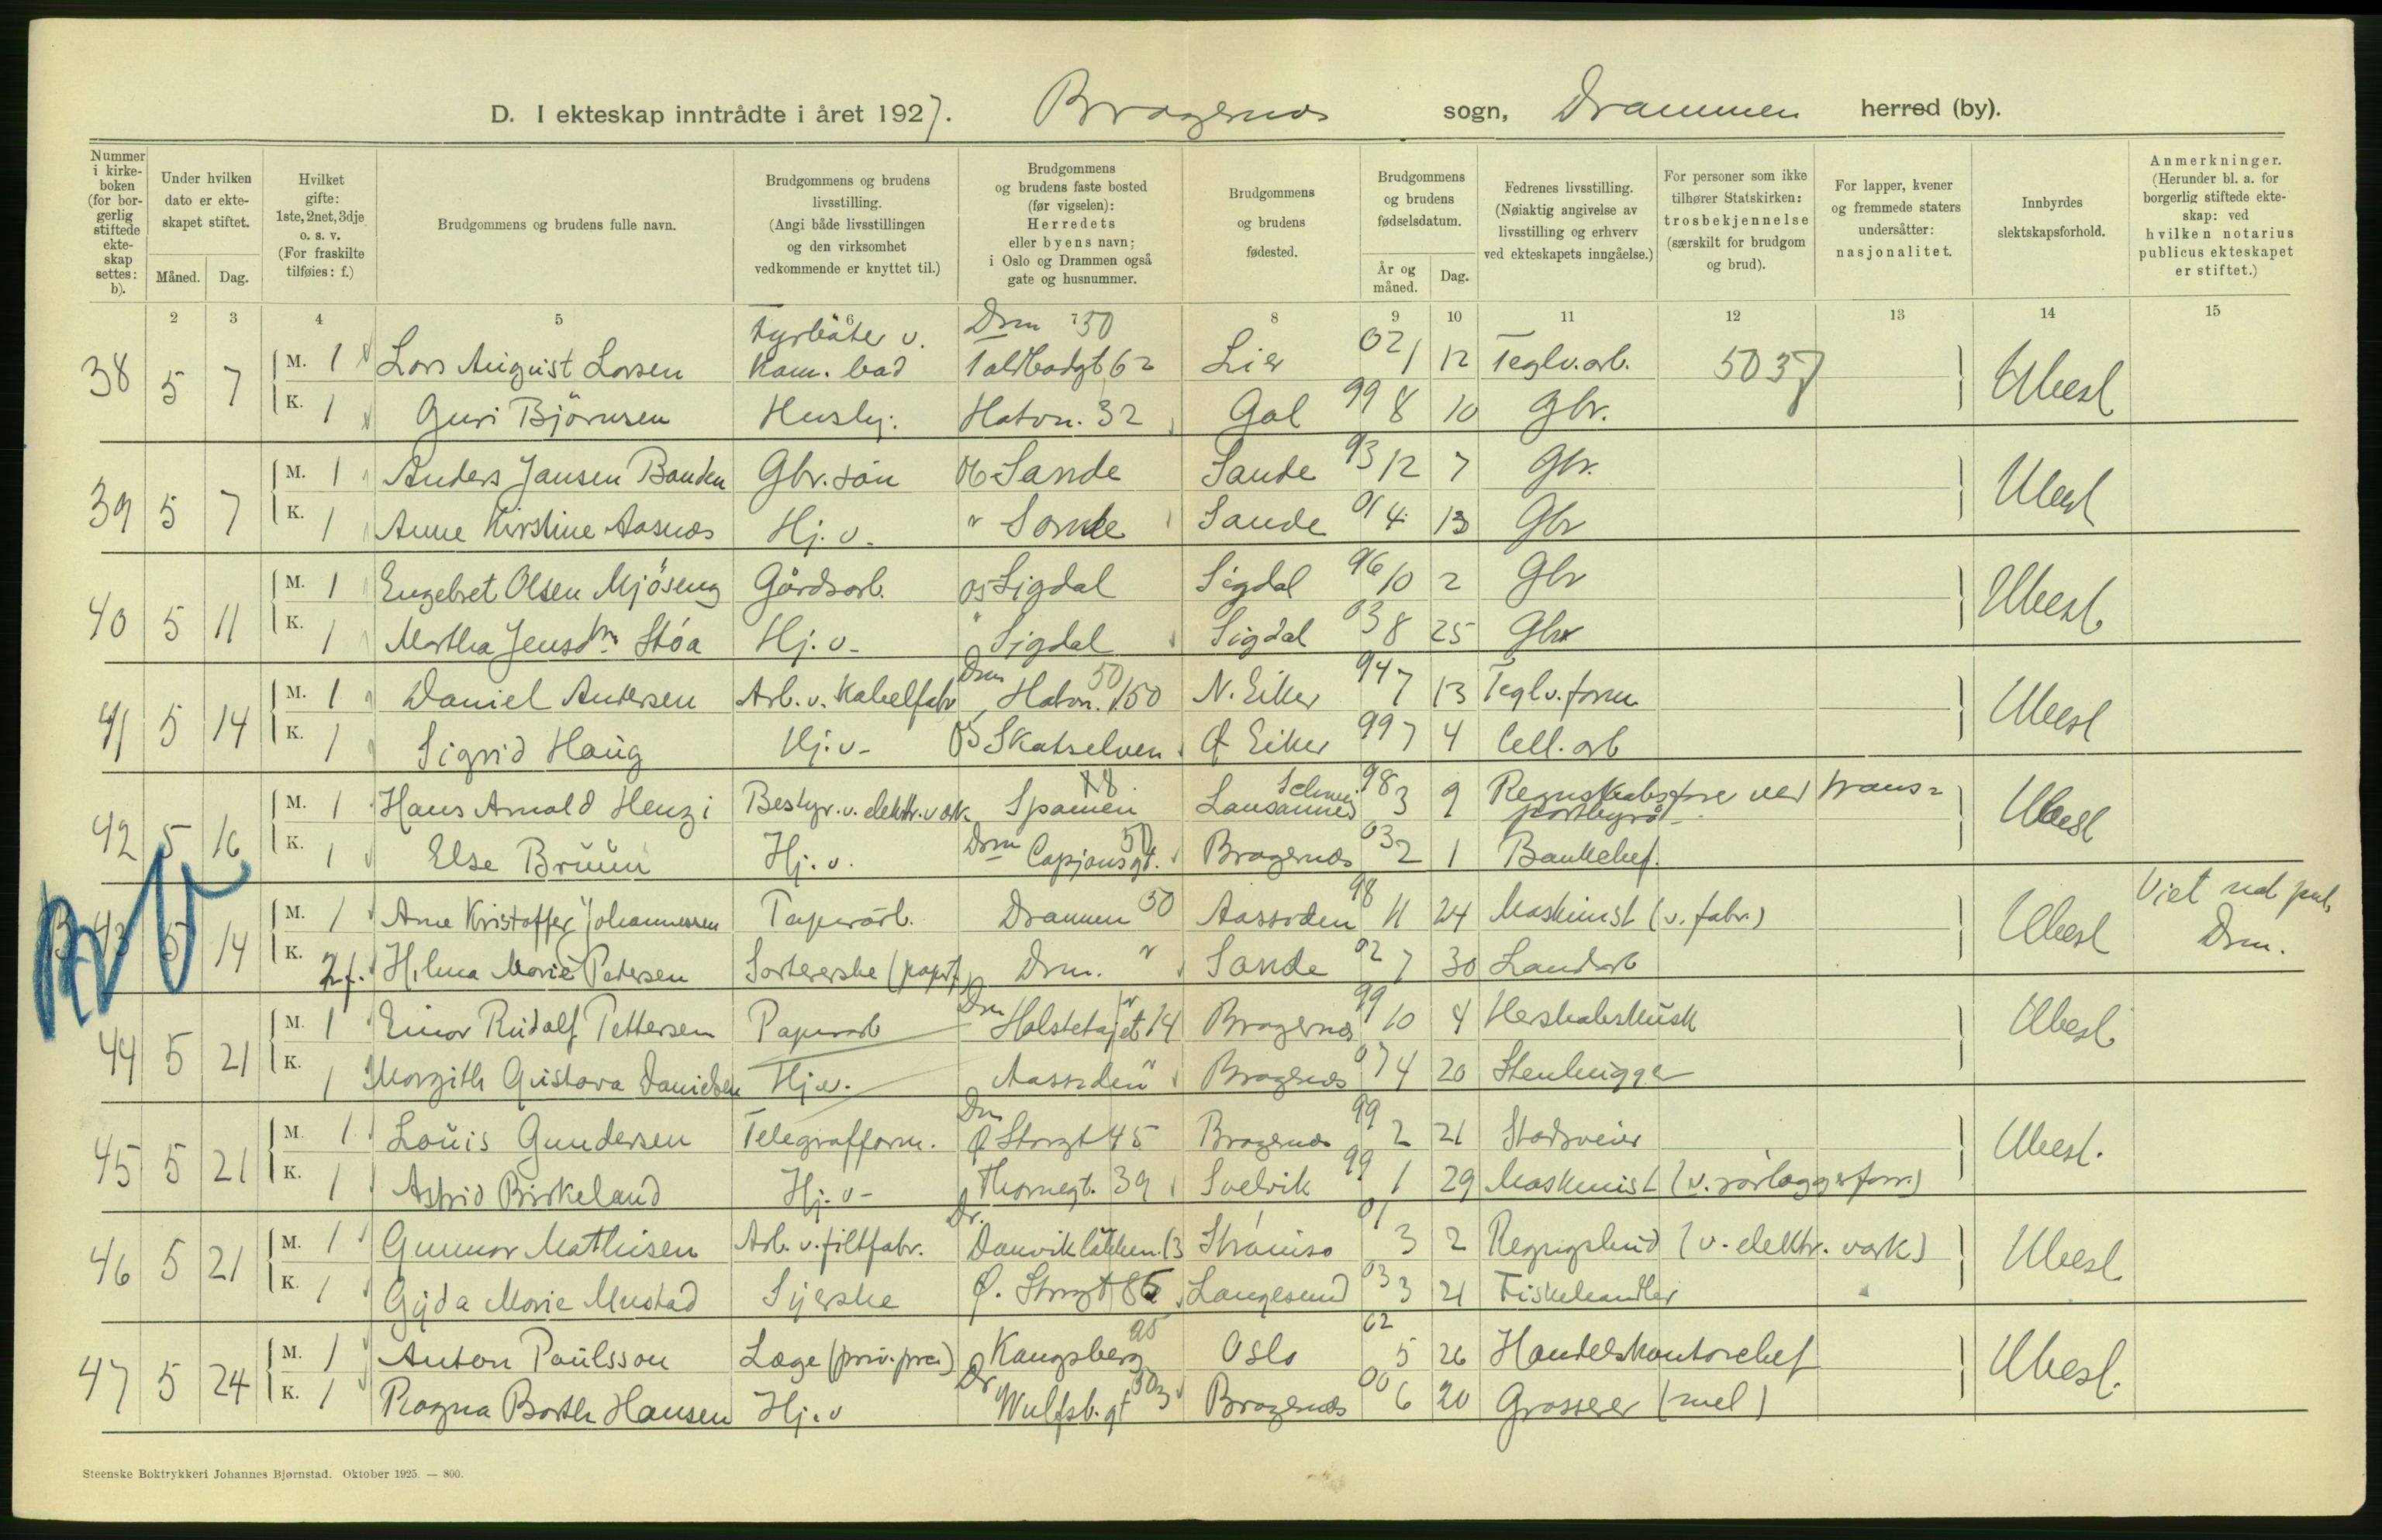 D. I ekteskap inntrådte i året 1927. Bragernes sogn, Drammen herred (by).
Nummer i kirke-boken (for bor-gerlig stiftede ekte-skap settes: b).
Under hvilken dato er ekte-skapet stiftet.
Måned. Dag.
Hvilket gifte: 1ste, 2net, 3dje o. s. v. (For fraskilte tilføies: f.)
Brudgommens og brudens fulle navn.
Brudgommens og brudens livsstilling. (Angi både livsstillingen og den virksomhet vedkommende er knyttet til.)
Brudgommens og brudens faste bosted (før vigselen): Herredets eller byens navn; i Oslo og Drammen også gate og husnummer.
Brudgommens og brudens fødested.
Brudgommens og brudens fødselsdatum.
År og måned. Dag.
Fedrenes livsstilling. (Nøiaktig angivelse av livsstilling og erhverv ved ekteskapets inngåelse.)
For personer som ikke tilhører Statskirken: trosbekjennelse (særskilt for brudgom og brud).
For lapper, kvener og fremmede staters undersåtter: nasjonalitet.
Innbyrdes slektskapsforhold.
Anmerkninger. (Herunder bl. a. for borgerlig stiftede ekte-skap: ved hvilken notarius publicus ekteskapet er stiftet.)
2 3 4 5 6 7 8 9 10 11 12 13 14 15
38 5 7 M. 1 Lars August Larsen Fyrbøter v. Kom. bad Drm 50 Toldbodgt 62 Lier 02 1 12 Teglv. arb. 5037 Ubesl
K. 1 Guri Björnsen Hushj. Hatvn. 32 Gol 99 8 10 Gbr.
39 5 7 M. 1 Anders Jansen Banden Gbr. sön 06 Sande Sande 93 12 7 Gbr. Ubesl
K. 1 Anne Kirstine Aasnæs Hj. v. " Sande Sande 01 4 13 Gbr
40 5 11 M. 1 Engebret Olsen Mjöseng Gårdsarb. 05 Sigdal Sigdal 96 10 2 Gbr Ubesl.
K. 1 Martha Jensdtr. Stöa Hj. v. " Sigdal Sigdal 03 8 25 Gbr
41 5 14 M. 1 Daniel Andersen Arb. v. Kabelfabr Drm 50 Hatvn. 150 N. Eiker 94 7 13 Teglv. form. Ubesl
K. 1 Sigrid Haug Hj. v. 05 Skotselven Ø Eiker 99 7 4 Cell. arb
42 5 16 M. 1 Hans Arnold Henzi Bestyr. v. elektr. verk. 48 Spanien Lausanne Schweiz 98 3 9 Regnskabsfører ved transportbyrå Ubesl
K. 1 Else Bruun Hj. v. Drm 50 Cappjonsgt. Bragernes 03 2 1 Bankchef.
B 43 5 14 M. 1 Arne Kristoffer Johannessen Papirarb. Drammen 50 Aassiden 98 11 24 Maskinist (v. fabr.) Ubesl Viet not. pub. Drm.
K. 2 f. Hilma Marie Petersen Sortererske (papirf.) Drm. " Sande 92 7 30 Landarb
44 5 21 M. 1 Einar Rudolf Pettersen Papirarb Drm " Holstetajet 14 Bragernes 99 10 4 Herskabskusk Ubesl.
K. 1 Margith Gustava Danielsen Hj. v. Aassiden " Bragernes 07 4 20 Stenhugger
45 5 21 M. 1 Louis Gundersen Telegrafform. Drm Ø Storgt 45 Bragernes 99 2 21 Stadsveier Ubesl.
K. 1 Astrid Birkeland Hj. v. Thornegt. 39 Svelvik 99 1 29 Maskinist (v. rörlæggerforr.)
46 5 21 M. 1 Gunnar Mathisen Arb. v. filtfabr. Dr. Danviklökken 13 Strömsø 01 3 2 Regngsbud (v. elektr. værk) Ubesl
K. 1 Gyda Marie Mustad Syerske Ø. Storgt 86 Langesund 03 3 21 Fiskehandler
47 5 24 M. 1 Anton Poulsson Læge (priv. prax.) 05 Kongsberg Oslo 02 5 26 Handelskontorchef Ubesl.
K. 1 Ragna Barth Hansen Hj. v Dr 50 Wulfsb. gt 3 Bragernes 00 6 20 Grosserer (mel)
Steenske Boktrykkeri Johannes Bjørnstad. Oktober 1925. — 800.